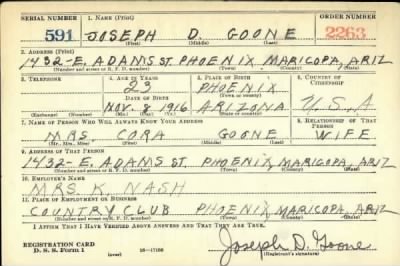 SERIAL NUMBER 1. NAME (Print) ORDER NUMBER
591 JOSEPH D. GOONE 2263
(First) (Middle) (Last)
2. ADDRESS (Print)
1432-E. ADAMS ST. PHOENIX, MARICOPA, ARIZ
(Number and street or R. F. D. number) (Town) (County) (State)
3. TELEPHONE 4. AGE IN YEARS 5. PLACE OF BIRTH 6. COUNTRY OF CITIZENSHIP
23 PHOENIX
DATE OF BIRTH (Town or county)
NOV. 8 1916 ARIZONA U.S.A
(Exchange) (Number) (Mo.) (Day) (Yr.) (State or country)
7. NAME OF PERSON WHO WILL ALWAYS KNOW YOUR ADDRESS 8. RELATIONSHIP OF THAT PERSON
MRS. CORA GOONE WIFE
(Mr., Mrs., Miss) (First) (Middle) (Last)
9. ADDRESS OF THAT PERSON
1432-E. ADAMS ST. PHOENIX, MARICOPA, ARIZ
(Number and street or R. F. D. number) (Town) (County) (State)
10. EMPLOYER'S NAME
MRS. K. NASH
11. PLACE OF EMPLOYMENT OR BUSINESS
COUNTRY CLUB PHOENIX, MARICOPA, ARIZ
(Number and street or R. F. D. number) (Town) (County) (State)
I AFFIRM THAT I HAVE VERIFIED ABOVE ANSWERS AND THAT THEY ARE TRUE.
REGISTRATION CARD
D. S. S. Form 1 (over) 16-17105
Joseph D. Goone
(Registrant's signature)